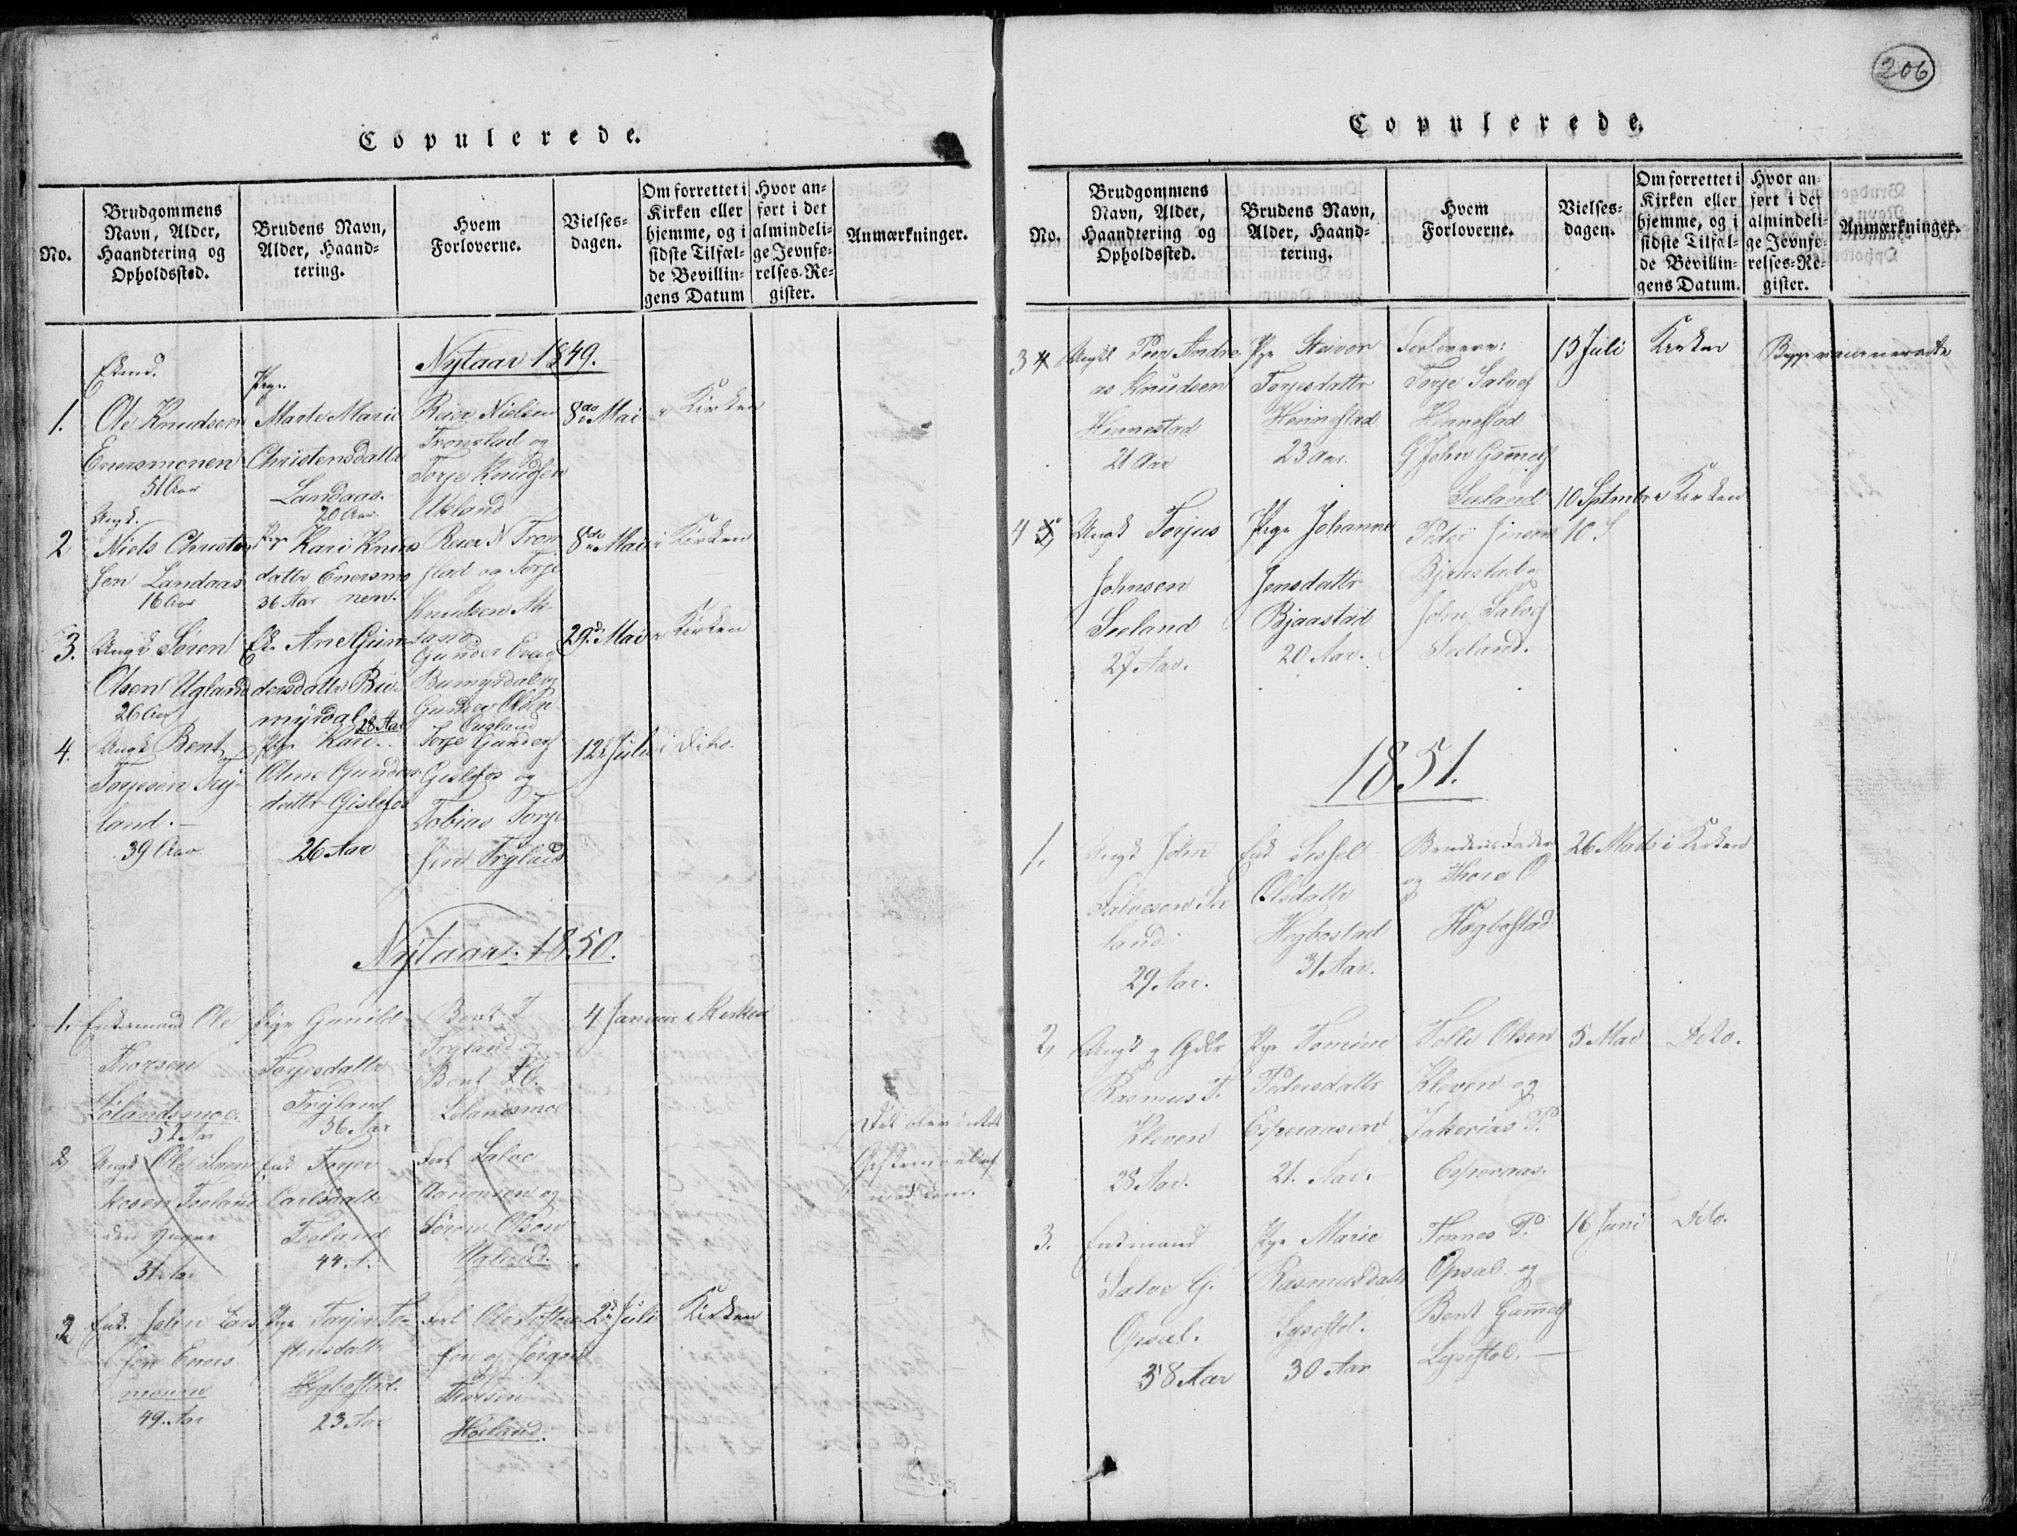 Copulerede.
No.
Brudgommens Navn, Alder, Haandtering og Opholdssted.
Brudens Navn, Alder, Haandtering.
Hvem Forloverne.
Vielsesdagen.
Om forrettet i Kirken eller hjemme, og i sidste Tilfælde Bevillingens Datum
Hvor anført i det almindelige Jevnførelses-Register.
Anmærkninger.
Nytaar 1849.
1.
Ole Knudsen
Enersmonen
51 Aar
Pige
Marte Marie
Christensdatter
Landaas.
20 Aar
Reier Nielsen
Tronstad og
Torje Knudsen
Ukland
8de Mai
i Kirken
2
Ungk.
Niels Christen
sen Landaas
16 Aar
Pige Kari Knuds
datter Enersmo
nen.
36 Aar
Reier N Tron
stad og Torje
Knudsen
8de Mai
i Kirken
3.
Ungk Søren
Olsen Ugland
26 Aar
Ek. Ane Gun
dersdatter Bu
myrdal
28 Aar
Gunder
Bumyrdal og
Gunder Olsen
Ougland
29de Mai
i Kirken
4.
Ungk Bent
Torjesen Try
land.
39 Aar
Pige Kari
Oline Gunders
datter Gislefos
26 Aar
Torje Gunders
Gislefos og
Tobias Torje
sen Tryland
12te Juli
i Dito.
Nytaar 1850.
1.
Enkemand Ole
Thorsen
Lølandsmoe.
52 Aar
Pige Gunild
Torjesdatter
Tryland
36 Aar
Bent T
Tryland og
Bent
Lølandsmoe
4 Januar
i Kirken
2
Ungk Ole
31 Aar
Enk Torjer
Carlsdatter
44 A.
Forl Salve
Aanonsen og
Søren Olsen
Ugland.
med dem.
2
Enk. John Lars
sen Eners
monen
49 Aar
Pige
stensdatter
Hægbostad.
23 Aar
Forl Ole
sen og Jørgen
Thorsen
Høiland.
2de Juli
Kirken
206
Copulerede.
No.
Brudgommens Navn, Alder, Haandtering og Opholdssted.
Brudens Navn, Alder, Haandtering.
Hvem Forloverne.
Vielsesdagen.
Om forrettet i Kirken eller hjemme, og i sidste Tilfælde Bevillingens Datum.
Hvor anført i det almindelige Jevnførelses-Register.
Anmærkninger.
3
Ungk Peer Andre
as Knudsen
Hennestad
21 Aar
Pge Steivor
Torjesdattr
Hennestad
23 Aar.
Forlovere:
Torje Salves
Hennestad
G John Gamels
Seeland
15 Juli
Kirken
4
Ungk Torjus
Johnsen
Seeland
27 Aar.
Pige Johanne
Jensdattr
Bjaastad
20 Aar.
Bjaastad og
John Salves
Seeland.
10 Septmbr
i Kirken
10 S
1851.
1.
Ungk John
Salvesen See
land
29 Aar.
Enk Sissel
Olsdattr
Hegbostad
31 Aar.
Brudens Fader
og Thore O
Hægbostad
26 Marts
i Kirken
2,
Ungk og Gdbr
Rasmus T.
Kleven
28 Aar.
Pge Tomine
Pedersdattr
21. Aar.
Tolle Olsen
Kleven og
Zakerias P.
Esperaas.
5 Mai
Dito.
3.
Enkmand
Salve G.
Opsal.
58 Aar
Pge Marie
Rasmusdattr
Lysestol.
30 Aar
Tønnes P.
Opsal. og
Bent Gamels
Lysestol.
16 Juni
Dito.